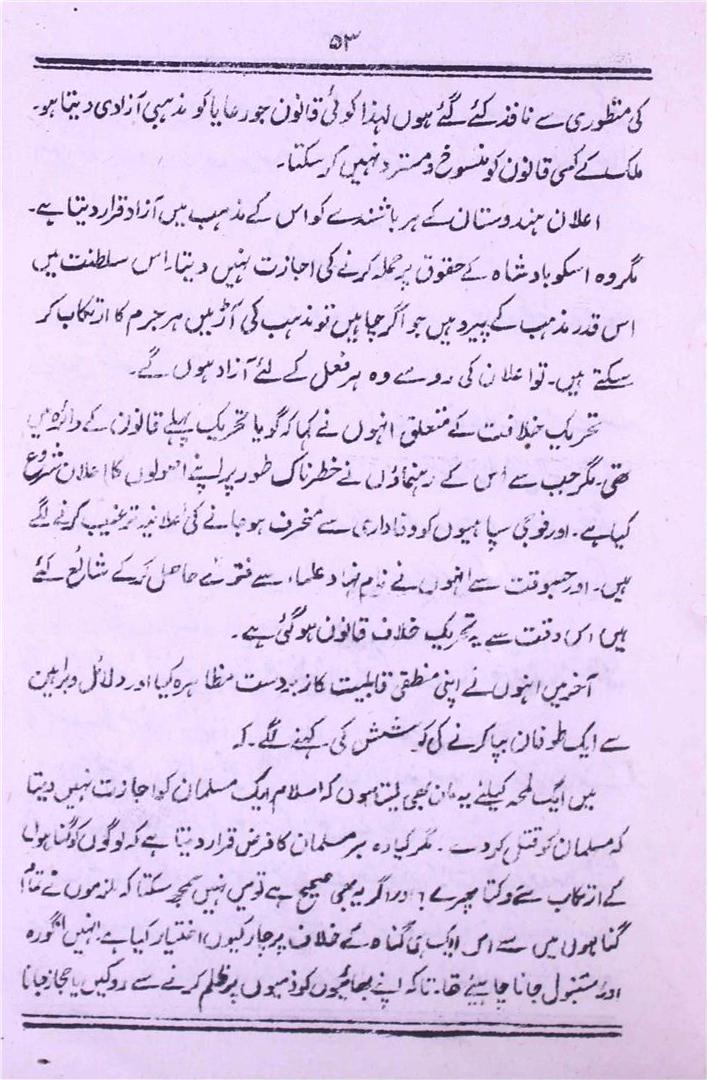 ۵۳
کی منظوری سے نافذ کئے گئے ہوں لہذا کوئی قانون جو رعایا کو مذہبی آزادی دیتا ہو۔
ملک کے کسی قانون کو منسوخ و مسترد نہیں کر سکتا۔
اعلان ہندوستان کے ہر باشندے کو اس کے مذہب میں آزاد قرار دیتا ہے۔
مگر وہ اسکو بادشاہ کے حقوق پر حملہ کرنے کی اجازت نہیں دیتا۔ اس سلطنت میں
اس قدر مذہب کے پیرو ہیں جو اگر چاہیں تو مذہب کی آڑ میں ہر جرم کا ارتکاب کر
سکتے ہیں۔ تو اعلان کی رو سے وہ ہر فعل کے لئے آزاد ہوں گے۔
تحریک خلافت کے متعلق انہوں نے کہا کہ گویا تحریک پہلے قانون کے دائرہ میں
تھی۔ مگر جب سے اُس کے رہنماؤں نے خطرناک طور پر اپنے اصولوں کا اعلان شروع
کیا ہے۔ اور فوجی سپاہیوں کو وفاداری سے منحرف ہو جانے کی اعلانیہ ترغیب کرنے لگے
ہیں۔ اور جسوقت سے انہوں نے نام نہاد علماء سے فتوے حاصل کرکے شائع کئے
ہیں اس وقت سے یہ تحریک خلاف قانون ہو گئی ہے۔
آخر میں انہوں نے اپنی منطقی قابلیت کا زبردست مظاہرہ کیا اور دلائل و براہین
سے ایک طوفان بپا کرنے کی کوشش کی۔ کہنے لگے۔ کہ
میں ایک لمحہ کیلئے یہ مان بھی لیتا ہوں کہ اسلام ایک مسلمان کو اجازت نہیں دیتا
کہ مسلمان کو قتل کر دے۔ مگر کیا وہ ہر مسلمان کا فرض قرار دیتا ہے کہ لوگوں کو گناہوں
کے ارتکاب سے روکتا پھرے؟ اور اگر یہ بھی صحیح ہے تو میں نہیں سمجھ سکتا کہ ملزموں نے تمام
گناہوں میں سے اس ایک ہی گناہ کے خلاف پرچار کیوں اختیار کیا ہے۔ انہیں انگورہ
اور ستنبول جانا چاہیئے تھا۔ تاکہ اپنے بھائیوں کو ذمیوں پر ظلم کرنے سے روکیں یا حجاز جانا